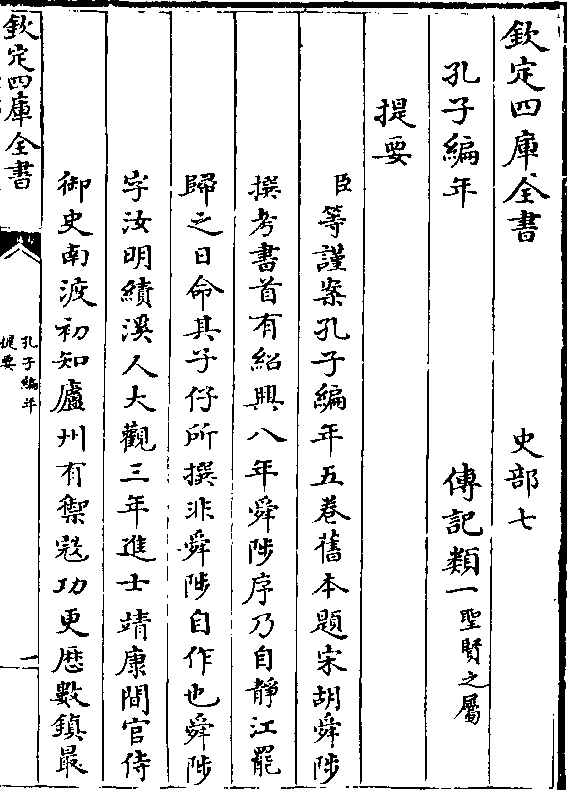 欽定四庫全書 史部七
孔子編年 傳記類一聖賢之屬
提要
臣等謹案孔子編年五卷舊本題宋胡舜陟
撰考書首有紹興八年舜陟序乃自靜江罷
歸之日命其子仔所撰非舜陟自作也舜陟
字汝明績溪人大觀三年進士靖康間官侍
御史南渡初知廬州有禦寇功更歴數鎮最
欽定四庫全書
孔子編年
提要
一